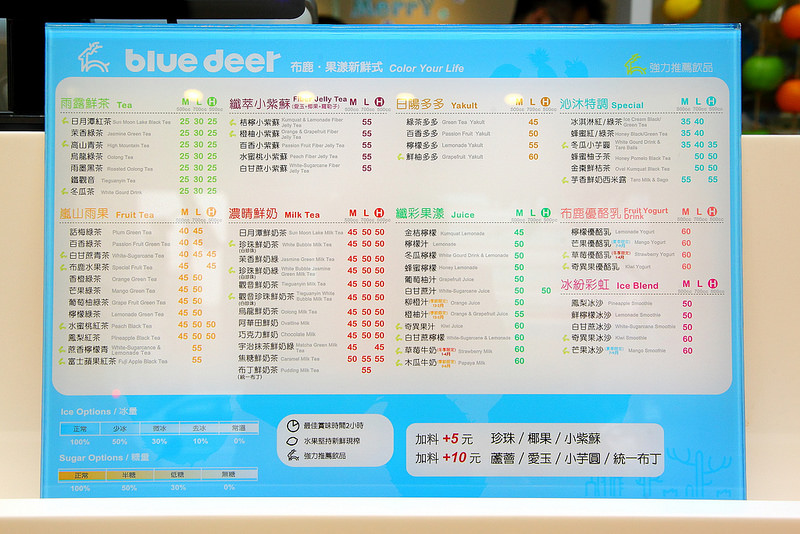 blue deer 布鹿・果漾新鮮式 Color Your Life
強力推薦飲品
雨露鮮茶 Tea M L H
500cc 700cc 500cc
日月潭紅茶 Sun Moon Lake Black Tea 25 30 25
茉香綠茶 Jasmine Green Tea 25 30 25
高山青茶 High Mountain Tea 25 30 25
烏龍綠茶 Oolong Tea 25 30 25
雨墨黑茶 Roasted Oolong Tea 25 30 25
鐵觀音 Tieguanyin Tea 25 30 25
冬瓜茶 White Gourd Drink 25 30 25
纖萃小紫蘇 Fiber Jelly Tea M L H
(愛玉+椰果+羅勒子)
桔檸小紫蘇 Kumquat & Lemonade Fiber Jelly Tea 55
橙柚小紫蘇 Orange & Grapefruit Fiber Jelly Tea 55
百香小紫蘇 Passion Fruit Fiber Jelly Tea 55
水蜜桃小紫蘇 Peach Fiber Jelly Tea 55
白甘蔗小紫蘇 White-Sugarcane Fiber Jelly Tea 55
白陽多多 Yakult M L H
綠茶多多 Green Tea Yakult 45
百香多多 Passion Fruit Yakult 50
檸檬多多 Lemonade Yakult 55
鮮柚多多 Grapefruit Yakult 60
沁沐特調 Special M L H
冰淇淋紅/綠茶 Ice Cream Black/Green Tea 35 40
蜂蜜紅/綠茶 Honey Black/Green Tea 35 40
冬瓜小芋圓 White Gourd Drink & Taro Balls 35 40 35
蜂蜜柚子茶 Honey Pomelo Black Tea 50 50
金棗鮮桔茶 Oval Kumquat Black Tea 50 50
芋香鮮奶西米露 Taro Milk & Sago 55 55
嵐山雨果 Fruit Tea M L H
話梅綠茶 Plum Green Tea 40 45
百香綠茶 Passion Fruit Green Tea 40 45
白甘蔗青茶 White-Sugarcane Tea 40 45 45
布鹿水果茶 Special Fruit Tea 45 45
香橙綠茶 Orange Green Tea 45 50
芒果綠茶 Mango Green Tea 45 50
葡萄柚綠茶 Grape Fruit Green Tea 45 50
檸檬綠茶 Lemonade Green Tea 45 50
水蜜桃紅茶 Peach Black Tea 45 50 50
鳳梨紅茶 Pineapple Black Tea 45 50 50
蔗香檸檬青 White-Sugarcance & Lemonade Tea 55
富士蘋果紅茶 Fuji Apple Black Tea 55
濃晴鮮奶 Milk Tea M L H
日月潭鮮奶茶 Sun Moon Lake Milk Tea 45 50 50
珍珠鮮奶茶 White Bubble Milk Tea 45 50 50
(白珍珠)
茉香鮮奶綠 Jasmine Green Milk Tea 45 50 50
珍珠鮮奶綠 White Bubble Jasmine Green Milk Tea 45 50 50
(白珍珠)
觀音鮮奶茶 Tieguanyin Milk Tea 45 50 50
觀音珍珠鮮奶茶 Tieguanyin White Bubble Milk Tea 45 50 50
(白珍珠)
烏龍鮮奶茶 Oolong Milk Tea 45 50 50
阿華田鮮奶 Ovaltine Milk 45 50 50
巧克力鮮奶 Chocolate Milk 45 50 50
宇治抹茶鮮奶綠 Matcha Green Milk Tea 45 45
焦糖鮮奶茶 Caramel Milk Tea 50 55 55
布丁鮮奶茶 Pudding Milk Tea 55
(統一布丁)
纖彩果漾 Juice M L H
金桔檸檬 Kumquat Lemonade 45
檸檬汁 Lemonade 50
冬瓜檸檬 White Gourd Drink & Lemonade 50
蜂蜜檸檬 Honey Lemonade 50
葡萄柚汁 Grapefruit Juice 50
白甘蔗汁 White-Sugarcane Juice 50 50
柳橙汁 Orange Juice 50
橙柚汁 Orange & Grapefruit Juice 55
奇異果汁 Kiwi Juice 60
白甘蔗檸檬 White-Sugarcane & Lemonade 60
草莓牛奶 Strawberry Milk 60
木瓜牛奶 Papaya Milk 60
布鹿優酪乳 Fruit Yogurt Drink M L H
檸檬優酪乳 Lemonade Yogurt 60
芒果優酪乳 Mango Yogurt 60
草莓優酪乳 Strawberry Yogurt 60
奇異果優酪乳 Kiwi Yogurt 60
冰紛彩虹 Ice Blend M L H
鳳梨冰沙 Pineapple Smoothie 50
鮮檸檬冰沙 Lemonade Smoothie 50
白甘蔗冰沙 White-Sugarcane Smoothie 50
奇異果冰沙 Kiwi Smoothie 60
芒果冰沙 Mango Smoothie 60
Ice Options / 冰量
正常 少冰 微冰 去冰 常溫
100% 50% 30% 10% 0%
Sugar Options / 糖量
正常 半糖 低糖 無糖
100% 50% 30% 0%
最佳賞味時間2小時
水果堅持新鮮現榨
強力推薦飲品
加料 +5 元 珍珠 / 椰果 / 小紫蘇
加料 +10 元 蘆薈 / 愛玉 / 小芋圓 / 統一布丁